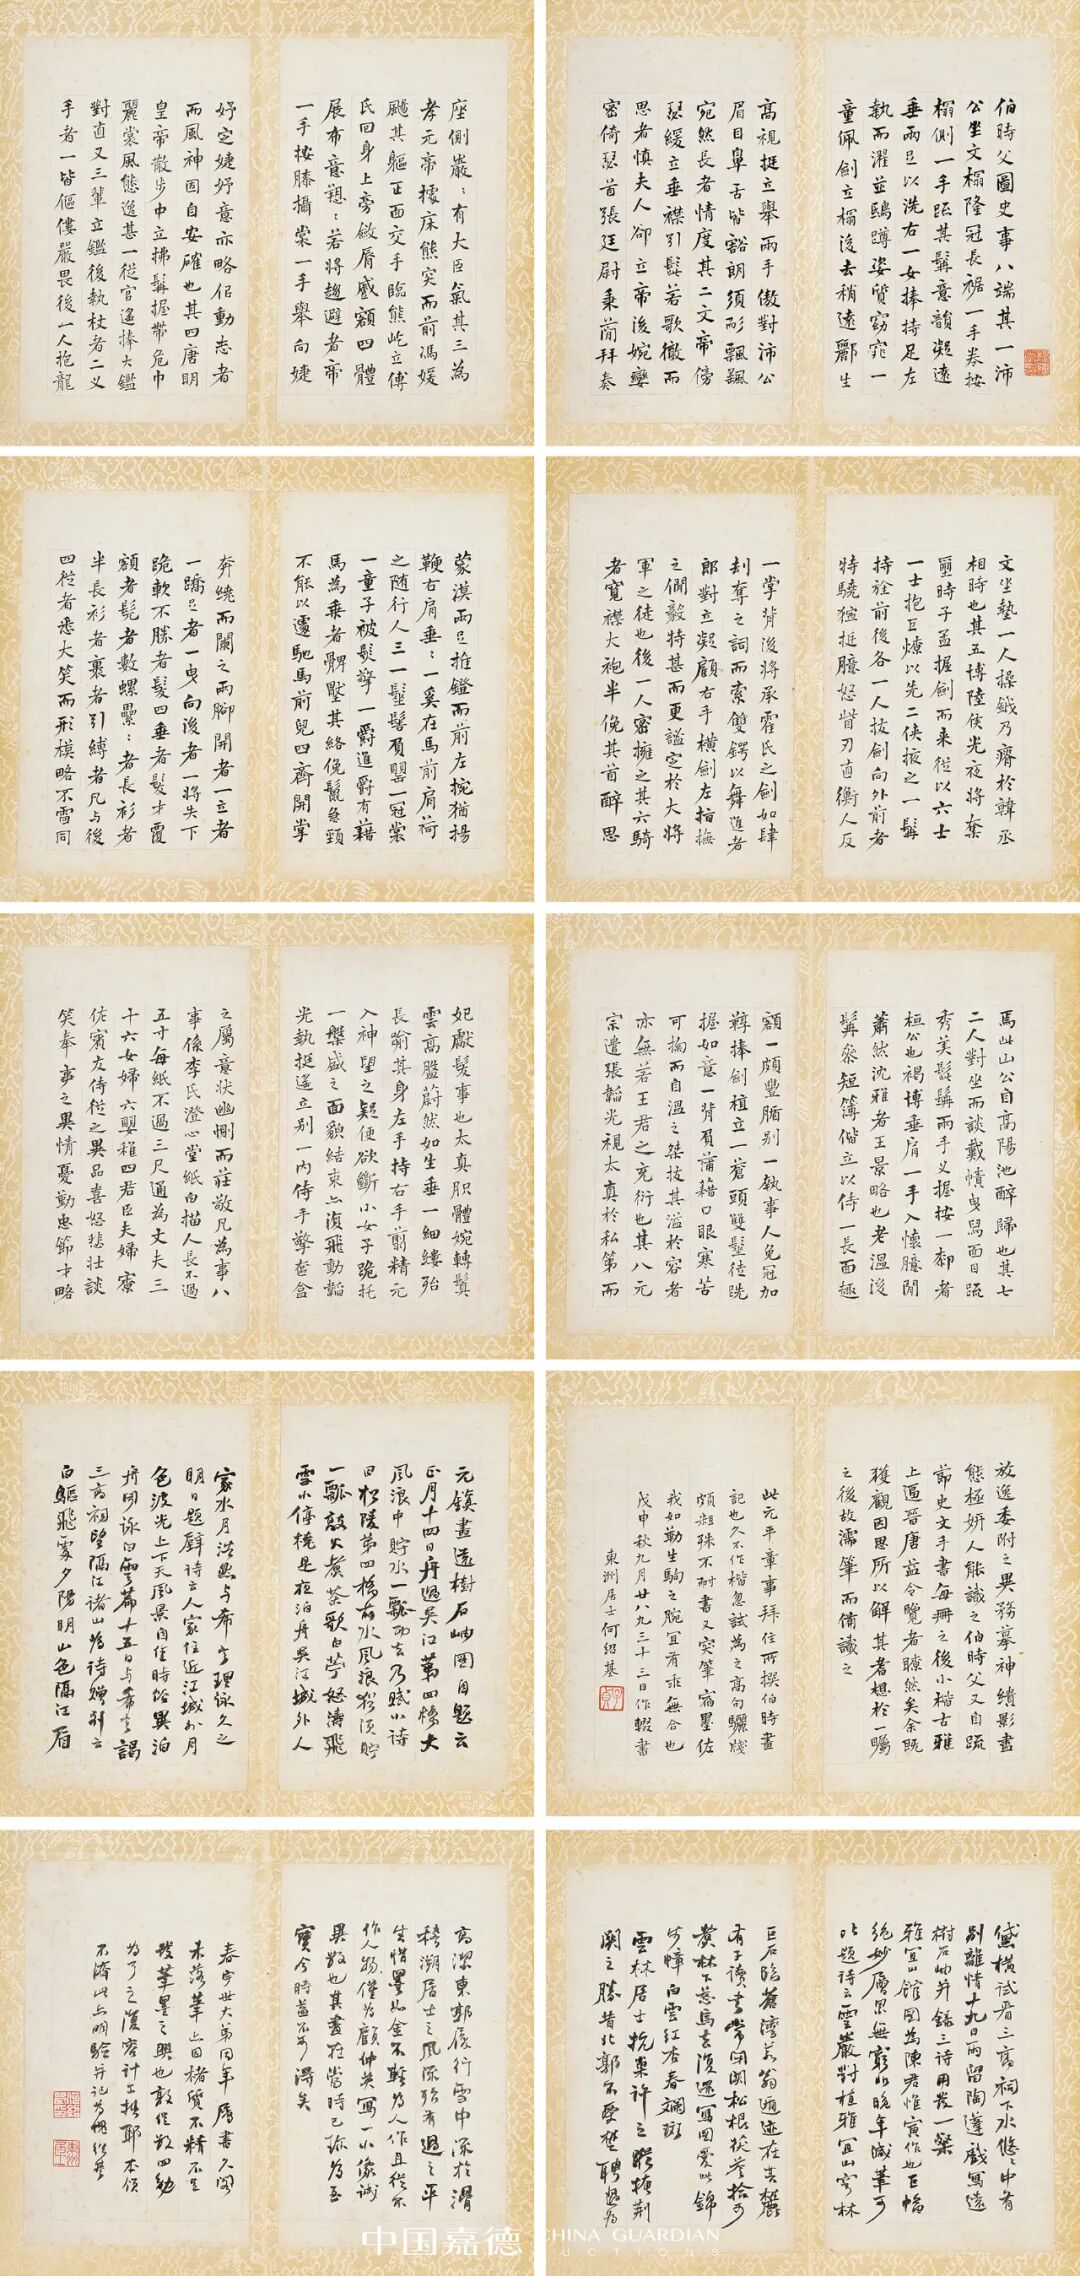 伯時父圖史事八端其一沛
公坐文榻隆冠長裾一手拳按
榻側一手踞其髯意韻凝遠
垂兩足以洗右一女捧持足左
執而濯並鴟蹲姿質窈窕一
童佩劍立榻後去稍遠酈生
高視挺立舉兩手傲對沛公
眉目鼻舌皆豁朗須耏飄飄
宛然長者情度其二文帝傍
瑟緩立垂襟引髯若歌徹而
思者慎夫人卻立帝後婉孌
密倚瑟首張廷尉秉簡拜奏
座側嚴:有大臣氣其三為
孝元帝據床熊突而前馮媛
颺其軀正面交手臨熊屹立傅
氏回身上旁斂脣蹙額四體
展布意愬:若將趨避者帝
一手按膝攝裳一手舉向婕
妤定婕妤意亦略侶動志者
而風神固自安確也其四唐明
皇帝散步中立拂髯握帶危巾
麗裳風態逸甚一從官遙捧大鑑
對直又三輩立鑑後執杖者二义
手者一皆傴僂嚴畏後一人抱龍
文坐墊一人操鉞乃齊於韓丞
相時也其五博陸侯光夜將索
璽時子孟握劍而来從以六士
一士抱巨燎以先二俠掖之一髯
持前後各一人拔劍向外前者
特驍獰挺臆怒眥刃直衡人反
一學背後將承霍氏之劍如肆
刦奪之詞而索雙鍔以舞進者
郎對立凝顧右手橫劍左指撫
之僩毅特甚而更謐定於大將
軍之徒也後一人密擁之其六騎
者寬襟大袍半俛其首醉思
蒙漠兩足推鐙而前左捥猶揚
鞭右肩垂:一奚在馬前肩荷
之随行人三一髽髻負罌一冠裳
一童子被髮擎一爵進爵有藉
馬為乗者髀壓其絡俛鬣急頸
不能以遽馳馬前兒四齊開掌
奔繞而闌之兩腳開者一立者
一蹻足者一曳向後者一將失下
跪軟不勝者髮四垂者髮才覆
額者髡者數螺疊:者長衫者
半長衫者裹者引縛者凡与後
四從者悉大笑而形模略不雷同
馬此山公自高陽池醉歸也其七
二人對坐而談戴幘曳舄面目疏
秀美髭髯兩手义握按一郗者
桓公也褐博垂肩一手入懷臆閒
蕭然沈雅者王景略也老溫後
髯參短簿偕立以侍一長面極
額一頗豐腯别一執事人免冠加
鞟捧劍植立一蒼頭雙髽徒跣
握如意一背負蒲藉口眼寒苦
可掬而自溫之桀技其溢於容者
亦無若王君之充衍也其八元
宗遣張韜光視太真於私第而
妃獻髮事也太真胑體婉轉鬒
雲高盤蔚然如生垂一細縷殆
長踰其身左手持右手前精元
入神望之疑便欲斷小女子跪托
一槃盛之面貌結束亦復飛動韜
光執挺遙立别一内侍手擎奩盒
之屬意狀幽惻而莊敬凡為事八
事係李氏澄心堂紙白描人長不過
五寸每紙不過三尺通為丈夫三
十六女婦六嬰稚四君臣夫婦寮
佐賓友侍從之異品喜怒悲壯談
笑奉事之異情憂勤忠節才略
放逸委附之異務摹神繢影盡
態極妍人能識之伯時父又自疏
節史文手書每冊之後小楷古雅
上逼晉唐益令覽者瞭然矣余既
獲觀因思所以解其耆想於一矚
之後故濡筆而備識之
此元平章事拜住所撰伯時畫
記也久不作楷忽試為之高句驪牋
頗麤殊不耐書又突筆宿墨佐
我如勒生駒之腕宜有乖無合也
戊申秋九月廿八九三十三日作輟書
東洲居士何紹基
元鎮畫遠樹石岫圖自題云
正月十四日舟過吳江第四橋大
風浪中貯水一瓢而去乃賦小詩
曰松陵第四橋前水風浪猶須貯
一瓢敲火煮茶歌白苧怒濤飛
雪小停橈是夜泊舟吳江城外人
家水月浩然与希言理詠久之
明日題壁詩云人家住近江城外月
色波光上下天風景自佳時俗異泊
舟閒詠白雲篇十五日与希言謁
三高祠望隔江諸山為詩贈别云
白鷗飛處夕陽明山色隔江眉
黛橫試看三高祠下水悠:中有
別離情十九日雨留陶蓬戲寫遠
樹石岫并錄三詩用發一粲
雅宜山館圖為陳君惟寅作也巨幅
絕妙層累無窮以晚年減筆可
比題詩云雲巖對植雅宜山客林
巨石臨蒼灣若翁遁迹在其麓
有子讀書常閉關松根茯苓拾可
煑林下慈烏去復還寫圖愛此錦
步幛白雲紅杏春斕斑
雲林居士抗巢許之蹤掩荆
關之勝昔北郭不受楚聘為
高潔東郭履行雪中深於滑
稽溯居士之風深殆有過之平
生惜墨如金不輕為人作且從不
作人物僅為顧仲英寫一小像誠
異數也其畫在當時已珍為至
寶今時蓋不可得矣
春宇世大弟同年屬書久閣
未落筆亡因楮質不精不足
發筆墨之興也敦促數四勉
為了之復容計工拙耶本領
不濟此亦明驗并記為愧紹基
中国嘉德 CHINA GUARDIAN
AUCTIONS